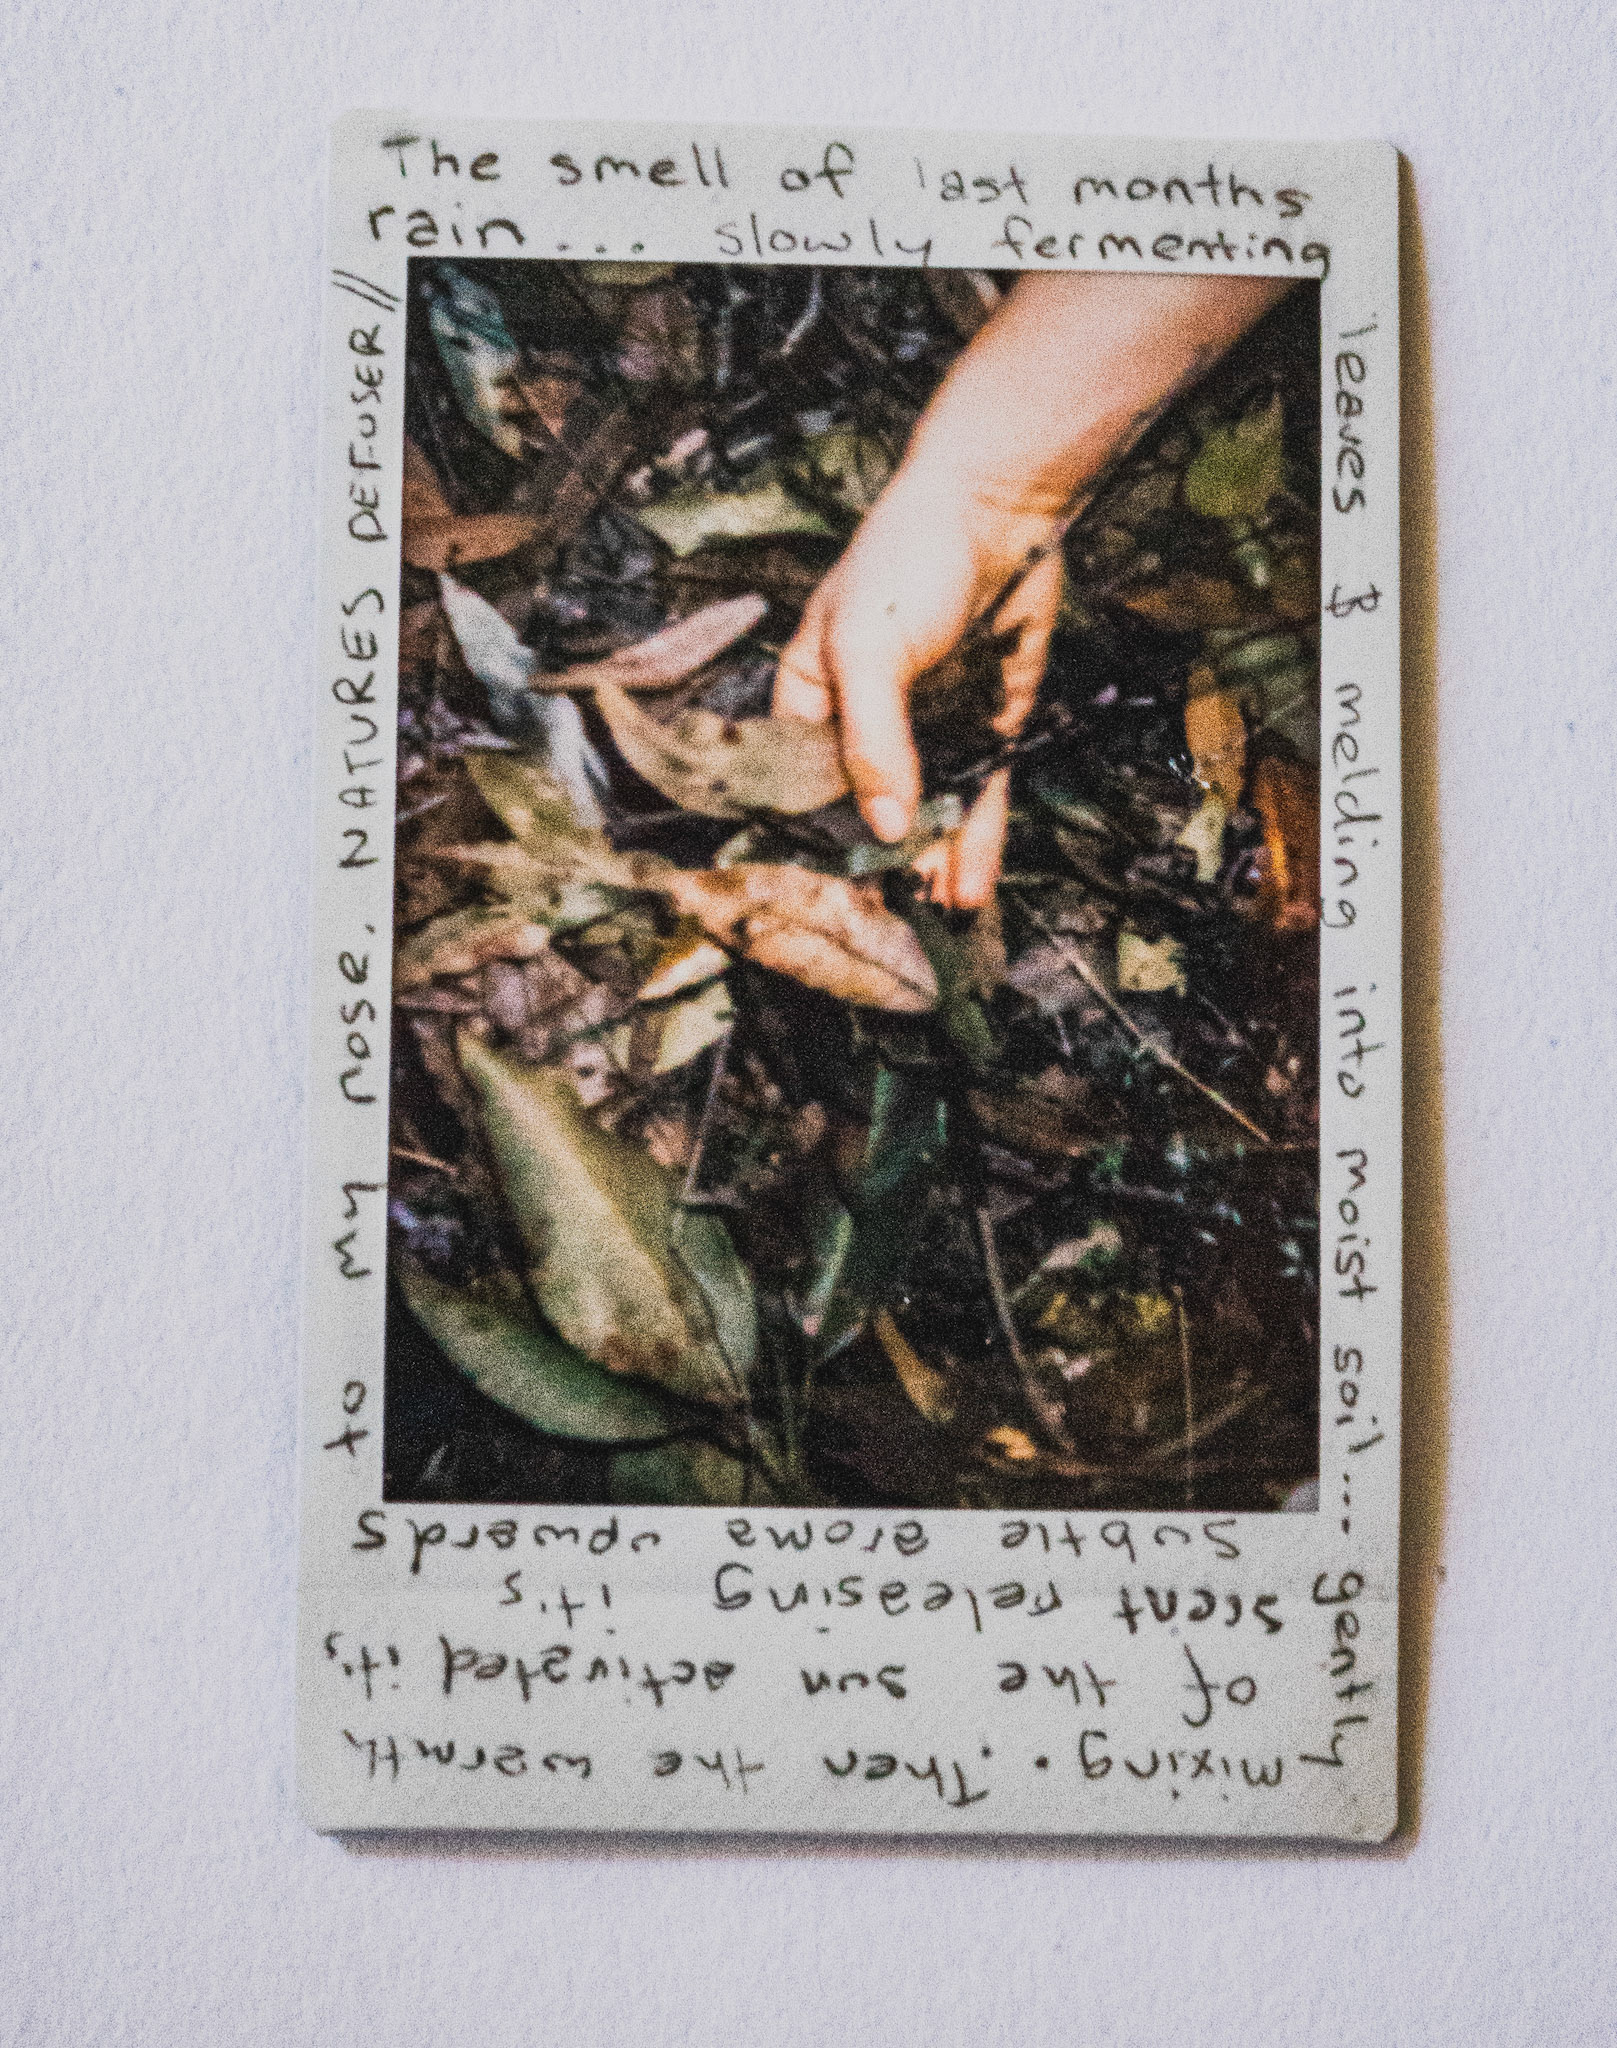 The smell of last months
rain... slowly fermenting
leaves & melding into moist soil... gently
mixing. Then the warmth
of the sun activated it's
scent releasing it's
subtle aroma upwards
to my nose. NATURES DEFUSER//